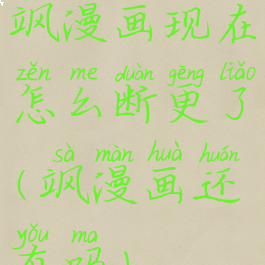 飒漫画现在
zěn me duàn gēng liǎo
怎么断更了
sà màn huà huán
(飒漫画还
yǒu ma
有吗)